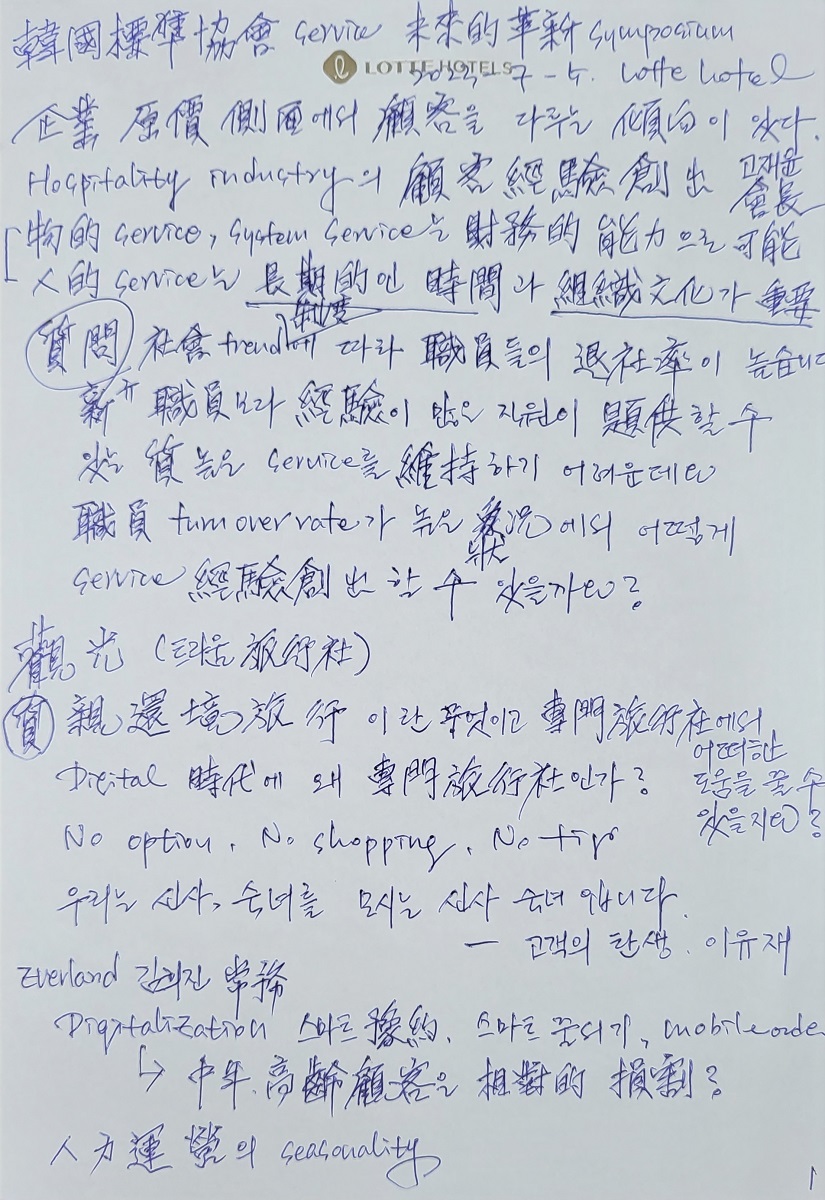 韓國標準協會 service 未來的革新 symposium
LOTTE HOTELS
2022-7-5. Lotte hotel
企業 原價 側面에서 顧客을 다루는 傾向이 있다.
Hospitality industry의 顧客經驗創出 고재윤 會長
物的 service, system service는 財務的 能力으로 可能
人的 service는 長期的인 時間과 組織文化가 重要
制度
質問 社會 trend에 따라 職員들의 退社率이 높습니다
新規 職員보다 經驗이 많은 직원이 提供할 수
있는 質 높은 service를 維持하기 어려운데요
職員 turnover rate가 높은 狀況에서 어떻게
service 經驗創出 할 수 있을까요?
觀光 (트라움 旅行社)
質 親還境旅行 이란 무엇이고 專門旅行社에서
어떠한
도움을 줄 수
있을지요?
Digital 時代에 왜 專門旅行社인가?
No option, No shopping, No tip
우리는 신사, 숙녀를 모시는 신사 숙녀 입니다.
- 고객의 탄생. 이유재
Everland 김희진 常務
Digitalization 스마트 豫約, 스마트 줄서기, mobile order
↳ 中年, 高齡顧客은 相對的 損害?
人力運營의 seasonality
1